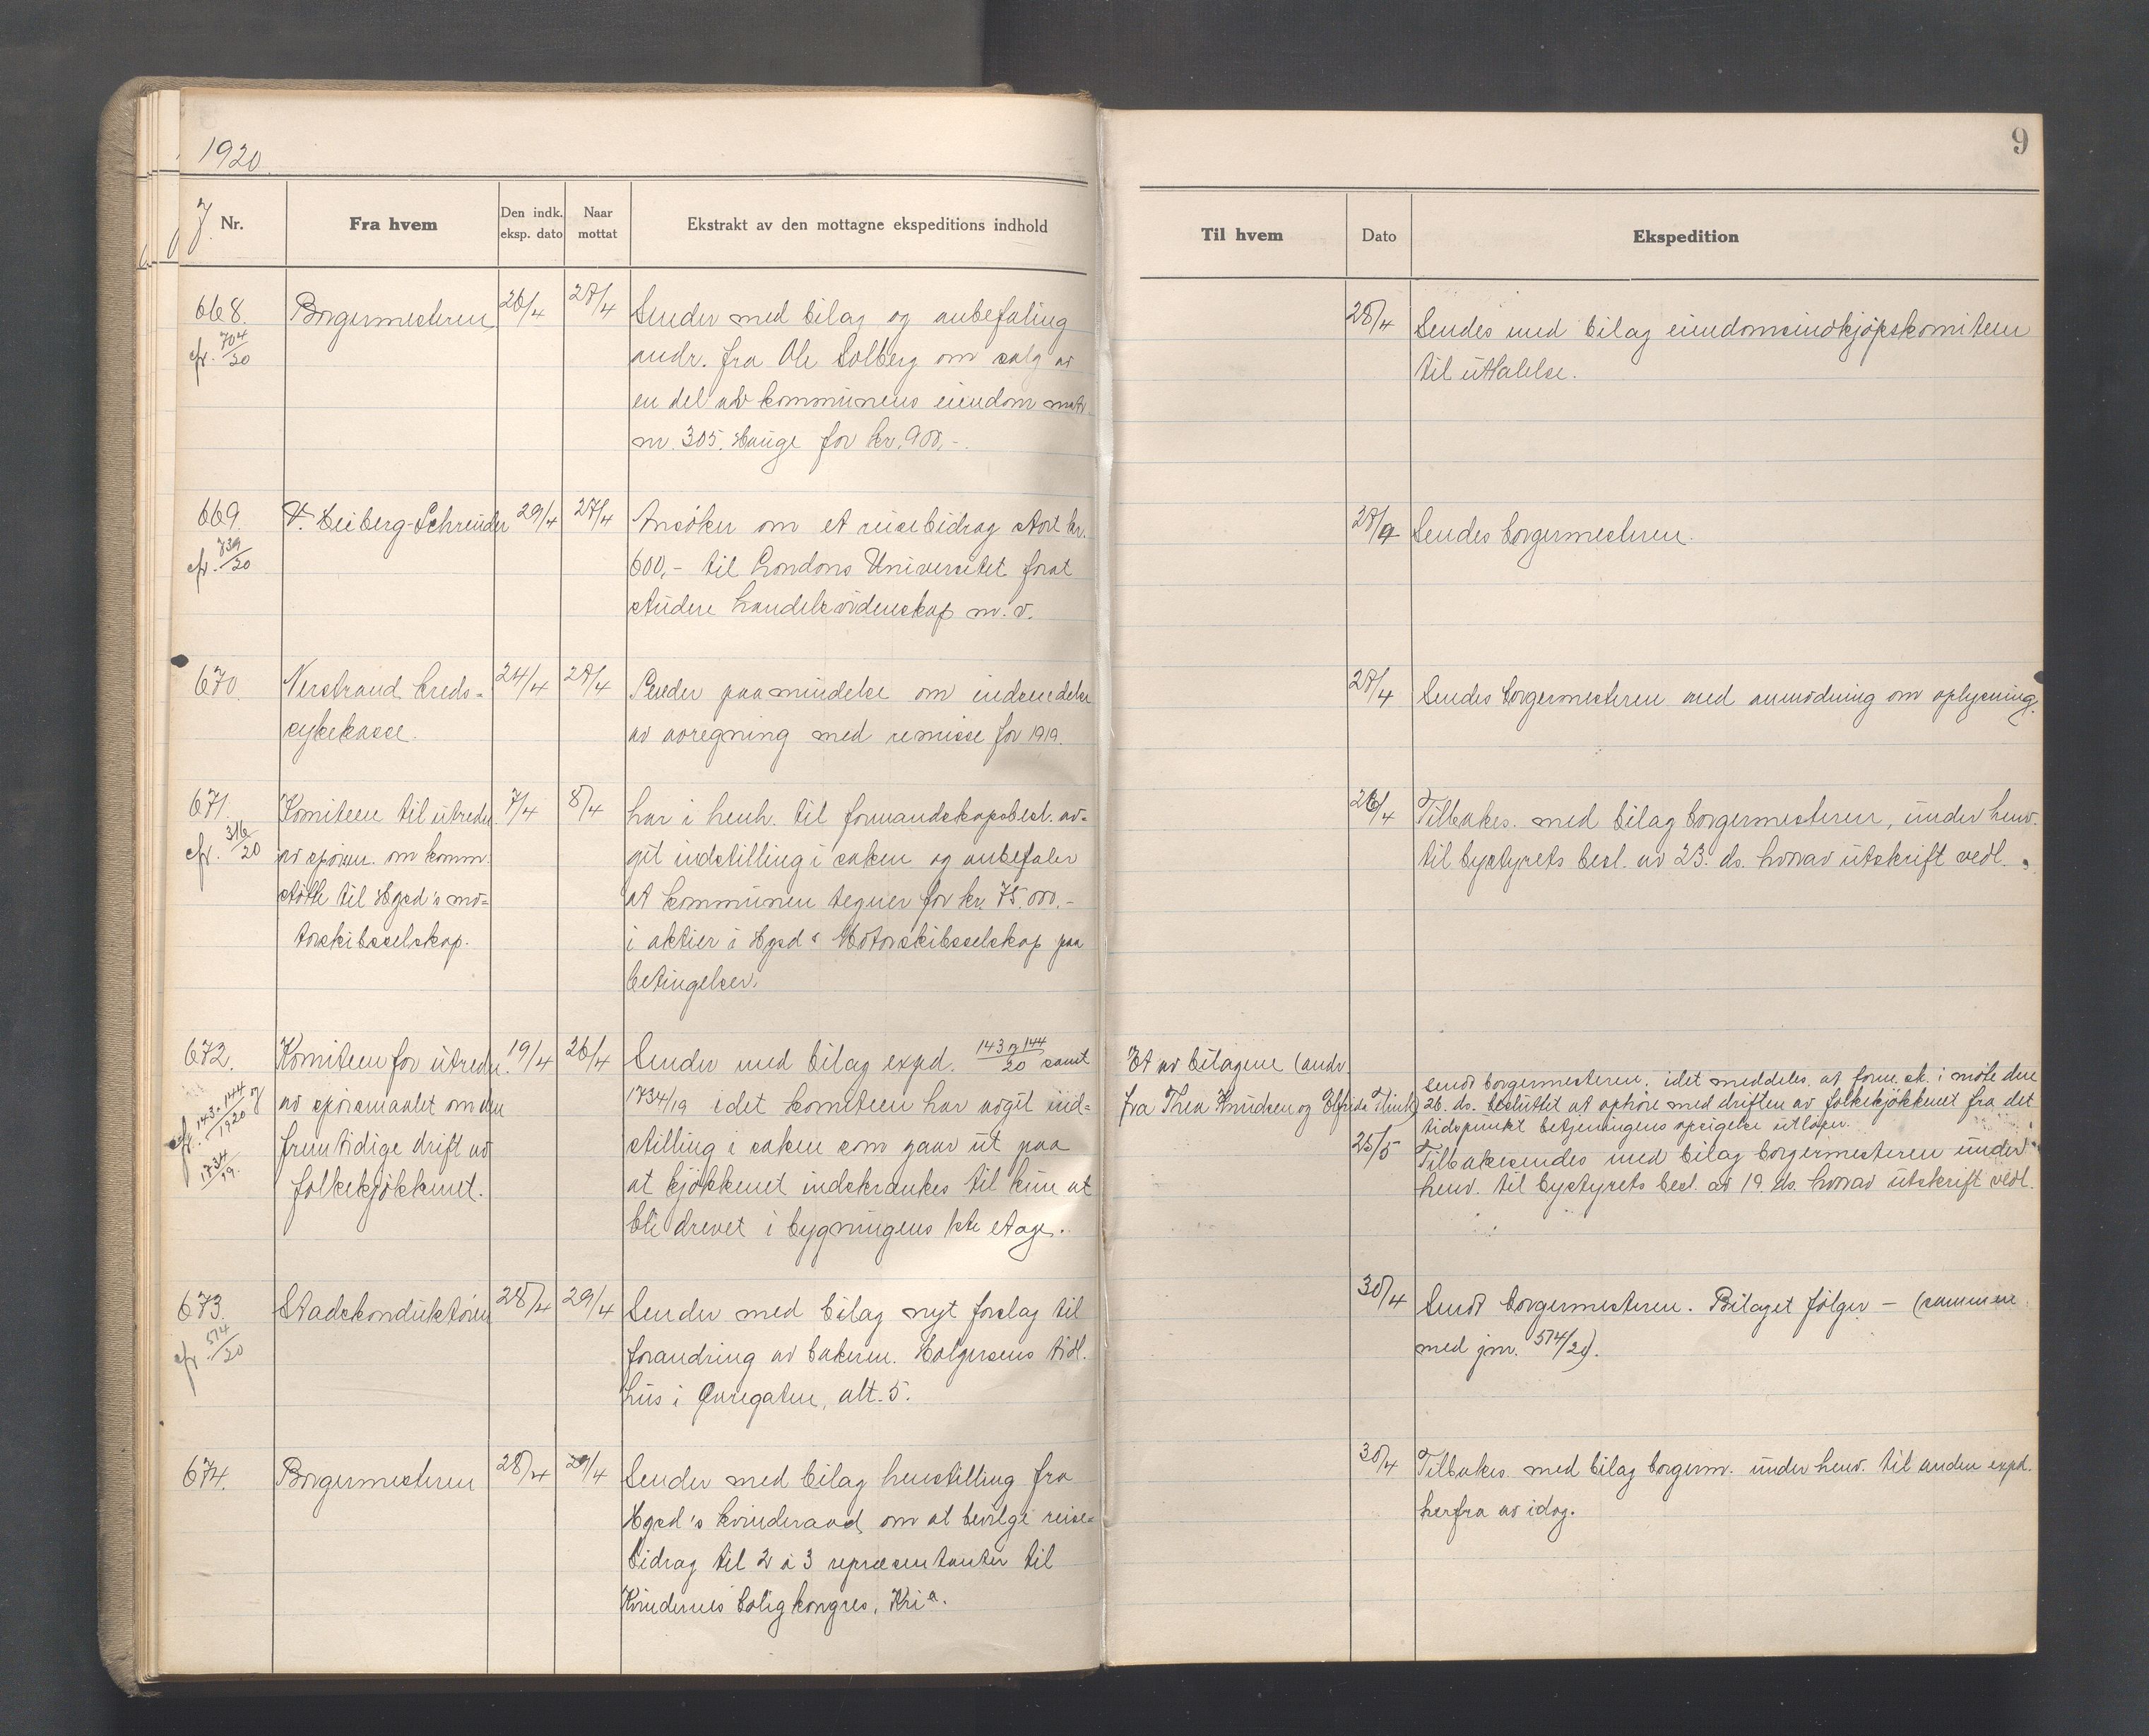 1920.
9
J. Nr.
Fra hvem
Den indk. eksp. dato
Naar mottat
Ekstrakt av den mottagne ekspeditions indhold
Til hvem
Dato
Ekspedition
668.
cfr. 704/20
Borgermesteren
26/4
27/4
Sender med bilag og anbefaling
andr. fra Ole Solberg om salg av
en del av kommunens eiendom matr.
nr. 305. Hauge for kr. 900,-.
28/4
Sendes med bilag eiendomsindkjøpskomiteen
til uttalelse.
669.
cfr. 739/20
V. Heiberg-Schreuder
29/4
27/4
Ansøker om et reisebidrag stort kr.
600,- til Londons Universitet forat
studere handelsvidenskap m. v.
27/4
Sendes borgermesteren.
670.
Nerstrand kreds-
sykekasse.
24/4
27/4
Sender paamindelse om indsendelse
av avregning med remisse for 1919.
27/4
Sendes borgermesteren med anmodning om oplysning.
671.
cfr. 316/20
Komiteen til utredn.
av spörsm. om komm.
støtte til Hgsd's mo-
torskibsselskap.
7/4
8/4
har i henh. til formandskapsbesl. av-
git indstilling i saken og anbefaler
at kommunen tegner for kr. 75.000.-
i aktier i Hgsd's Motorskibsselskap paa
betingelser.
26/4
Tilbakes. med bilag borgermesteren, under henv.
til bystyrets besl. av 23. ds. hvorav utskrift vedl.
672.
cfr. 143 o 144/1920 og
1734/19.
Komiteen for utredn.
av spörsmaalet om den
fremtidige drift av
folkekjökkenet.
19/4
26/4
Sender med bilag exped. 143 og 144/20 samt
1734/19 idet komiteen har avgit ind-
stilling i saken som gaar ut paa
at kjökkenet indskrænkes til kun at
bli drevet i bygningens 1ste etage.
Et av bilagene (andr.
fra Thea Knudsen og Elfrida Flink)
sendt borgermesteren. idet meddeles, at form.sk. i møte den
26. ds. besluttet at ophöre med driften av folkekjökkenet fra det
tidspunkt betjeningens opsigelse utlöper.
25/5
Tilbakesendes med bilag borgermesteren under
henv. til bystyrets besl. av 19. ds. hvorav utskrift vedl.
673.
cfr. 574/20
Stadskonduktören
28/4
29/4
Sender med bilag nyt forslag til
forandring av bakerm. Holgersens tidl.
hus i Øvregaten, alt. 5.
30/4
Sendt borgermesteren. Bilaget fölger – (sammen
med jnr. 574/20).
674.
Borgermesteren
28/4
29/4
Sender med bilag henstilling fra
Hgsd's kvinderaad om at bevilge reise-
bidrag til 2 à 3 repræsentanter til
Kvindernes boligkongres, Kria.
30/4
Tilbakes. med bilag borgerm. under henv. til anden exped.
herfra av idag.